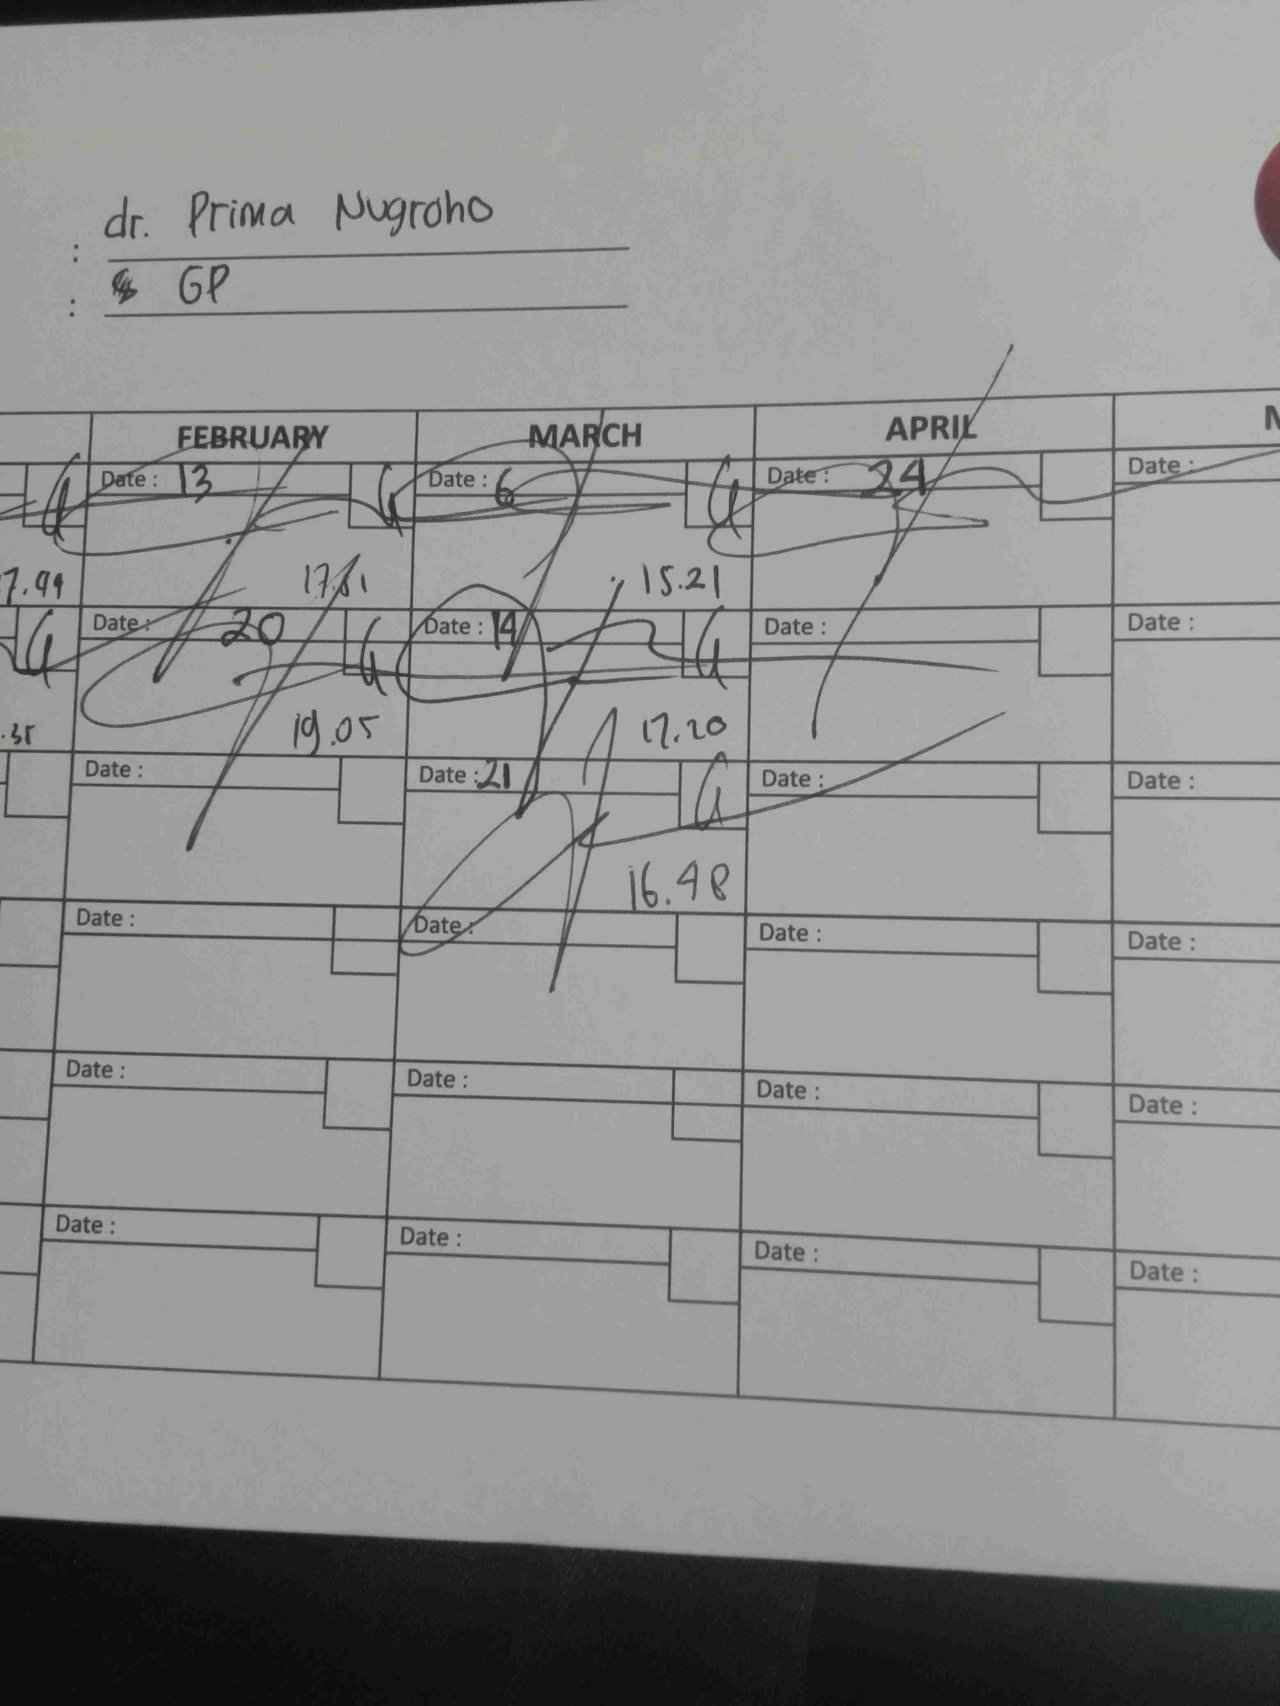 : dr. Prima Nugroho
: GP
FEBRUARY MARCH APRIL
Date : 13 Date : 6 Date : 24 Date :
15.21
Date : 20 Date : 14 Date : Date :
19.05 17.20
Date : Date : 21 Date : Date :
16.48
Date : Date : Date : Date :
Date : Date : Date : Date :
Date : Date : Date : Date :